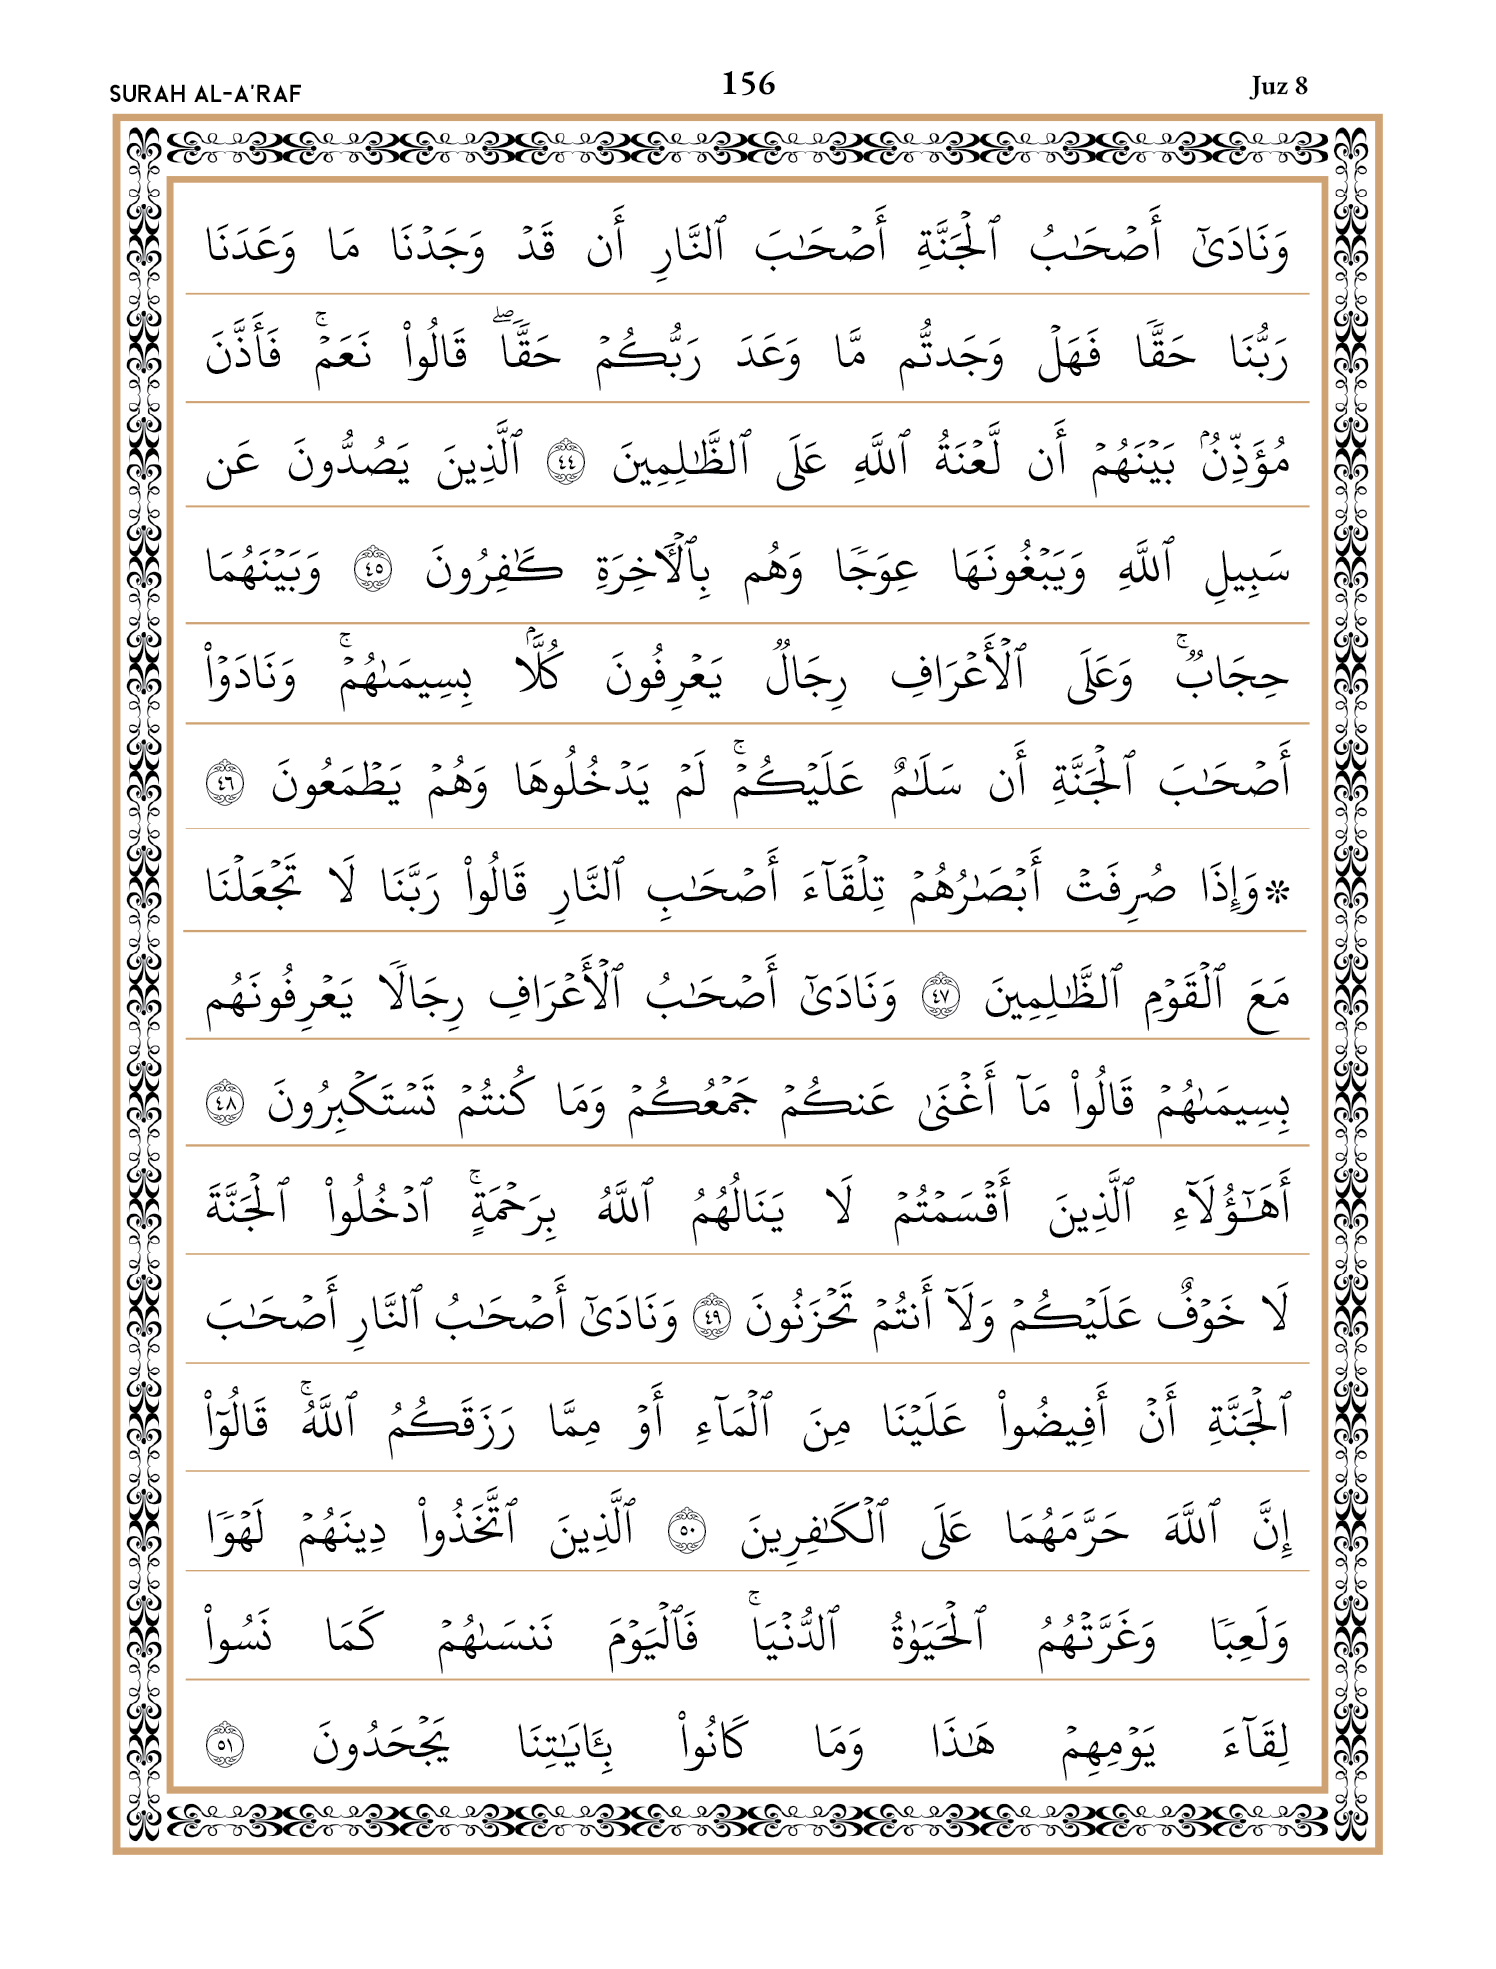 SURAH AL-A'RAF 156 Juz 8
وَنَادَىٰٓ أَصۡحَـٰبُ ٱلۡجَنَّةِ أَصۡحَـٰبَ ٱلنَّارِ أَن قَدۡ وَجَدۡنَا مَا وَعَدَنَا
رَبُّنَا حَقࣰّا فَهَلۡ وَجَدتُّم مَّا وَعَدَ رَبُّكُمۡ حَقࣰّاۖ قَالُوا۟ نَعَمۡۚ فَأَذَّنَ
مُؤَذِّنُۢ بَيۡنَهُمۡ أَن لَّعۡنَةُ ٱللَّهِ عَلَى ٱلظَّـٰلِمِينَ ٤٤ ٱلَّذِينَ يَصُدُّونَ عَن
سَبِيلِ ٱللَّهِ وَيَبۡغُونَهَا عِوَجࣰا وَهُم بِٱلۡأَخِرَةِ كَـٰفِرُونَ ٤٥ وَبَيۡنَهُمَا
حِجَابࣱۚ وَعَلَى ٱلۡأَعۡرَافِ رِجَالࣱ يَعۡرِفُونَ كُلَّۢا بِسِيمَىٰهُمۡۚ وَنَادَوۡا۟
أَصۡحَـٰبَ ٱلۡجَنَّةِ أَن سَلَـٰمٌ عَلَيۡكُمۡۚ لَمۡ يَدۡخُلُوهَا وَهُمۡ يَطۡمَعُونَ ٤٦
* وَإِذَا صُرِفَتۡ أَبۡصَـٰرُهُمۡ تِلۡقَآءَ أَصۡحَـٰبِ ٱلنَّارِ قَالُوا۟ رَبَّنَا لَا تَجۡعَلۡنَا
مَعَ ٱلۡقَوۡمِ ٱلظَّـٰلِمِينَ ٤٧ وَنَادَىٰٓ أَصۡحَـٰبُ ٱلۡأَعۡرَافِ رِجَالࣰا يَعۡرِفُونَهُم
بِسِيمَىٰهُمۡ قَالُوا۟ مَآ أَغۡنَىٰ عَنكُمۡ جَمۡعُكُمۡ وَمَا كُنتُمۡ تَسۡتَكۡبِرُونَ ٤٨
أَهَـٰٓؤُلَآءِ ٱلَّذِينَ أَقۡسَمۡتُمۡ لَا يَنَالُهُمُ ٱللَّهُ بِرَحۡمَةٍۚ ٱدۡخُلُوا۟ ٱلۡجَنَّةَ
لَا خَوۡفٌ عَلَيۡكُمۡ وَلَآ أَنتُمۡ تَحۡزَنُونَ ٤٩ وَنَادَىٰٓ أَصۡحَـٰبُ ٱلنَّارِ أَصۡحَـٰبَ
ٱلۡجَنَّةِ أَنۡ أَفِيضُوا۟ عَلَيۡنَا مِنَ ٱلۡمَآءِ أَوۡ مِمَّا رَزَقَكُمُ ٱللَّهُۚ قَالُوٓا۟
إِنَّ ٱللَّهَ حَرَّمَهُمَا عَلَى ٱلۡكَـٰفِرِينَ ٥٠ ٱلَّذِينَ ٱتَّخَذُوا۟ دِينَهُمۡ لَهۡوࣰا
وَلَعِبࣰا وَغَرَّتۡهُمُ ٱلۡحَيَوٰةُ ٱلدُّنۡيَاۚ فَٱلۡيَوۡمَ نَنسَىٰهُمۡ كَمَا نَسُوا۟
لِقَآءَ يَوۡمِهِمۡ هَـٰذَا وَمَا كَانُوا۟ بِـَٔايَـٰتِنَا يَجۡحَدُونَ ٥١